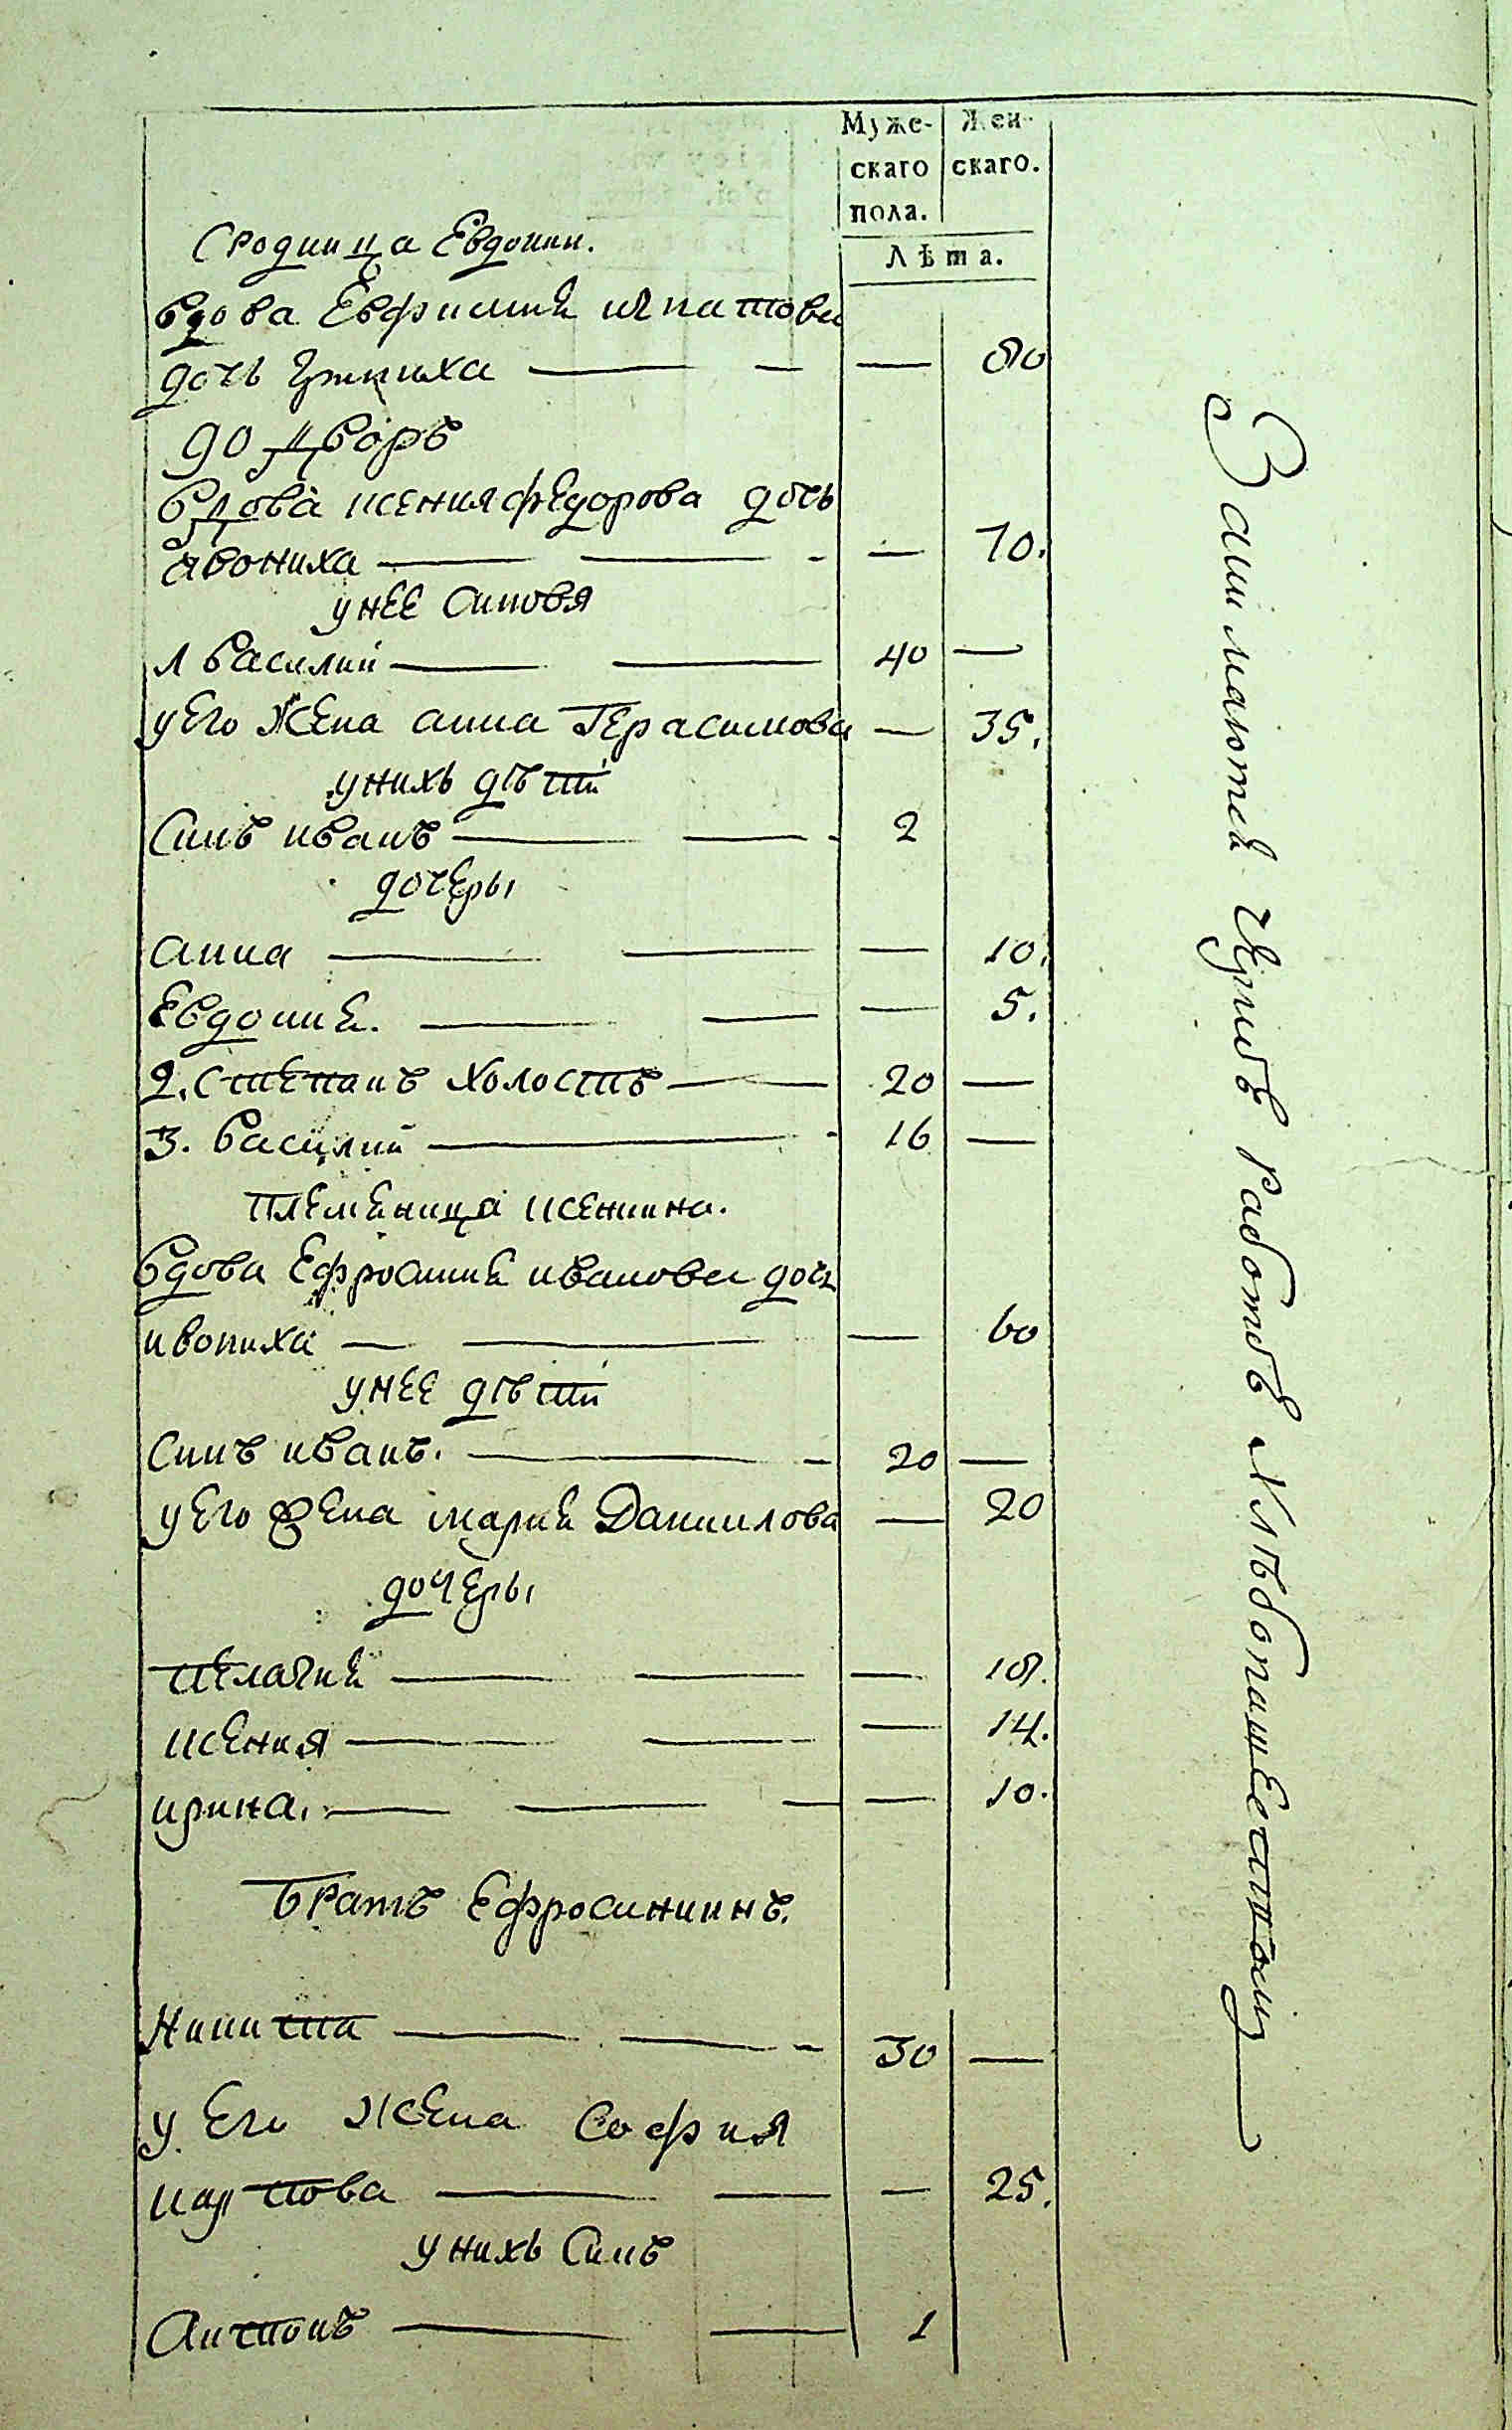 Муже- Жен-
скаго скаго.
пола.
Лѣта.
Сродница Евдокии.
вдова Евфимия игнатова
дочь — — — 80
90 дворъ
вдова ксения федорова дочь
явониха — — - — 70.
унее синовя
1 василий — — 40 —
у Его жена анна Герасимова — 35.
унихъ дѣти
Синъ иванъ — — - 2
дочеры
анна — — — 10.
Евдокия. — — — 5.
2. степанъ холостъ — — 20 —
3. василий — - 16 —
племеница ксенина.
вдова Ефросиния иванова дочь
ивониха — — — 60
унее дѣти
синъ иванъ. — - 20 —
у Его жена мария Даниилова — 20
дочеры
пелагия — — — 18.
ксения — — — 14.
ирина. — — — — 10.
братъ Ефросининъ.
Никита — — - 30 —
у Его жена София
карпова — — — 25.
унихъ Синъ
Антонъ — — 1
Занимаются чернѣ работъ хлѣбопашеством